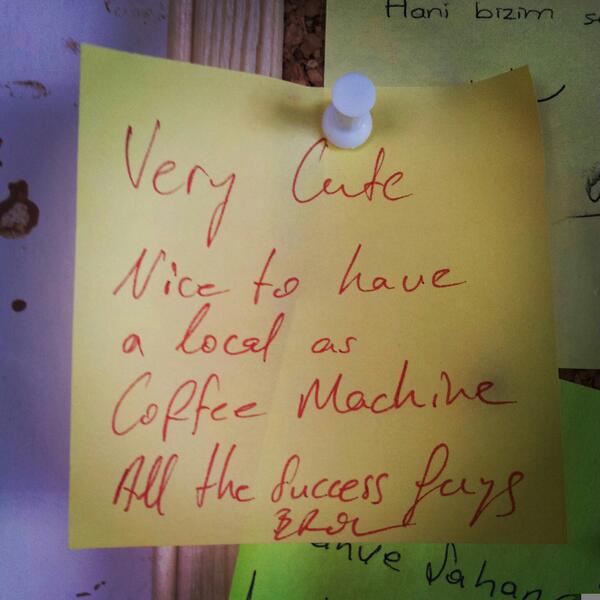 Hani bizim
Very Cute
Nice to have
a local as
Coffee Machine
All the Success guys